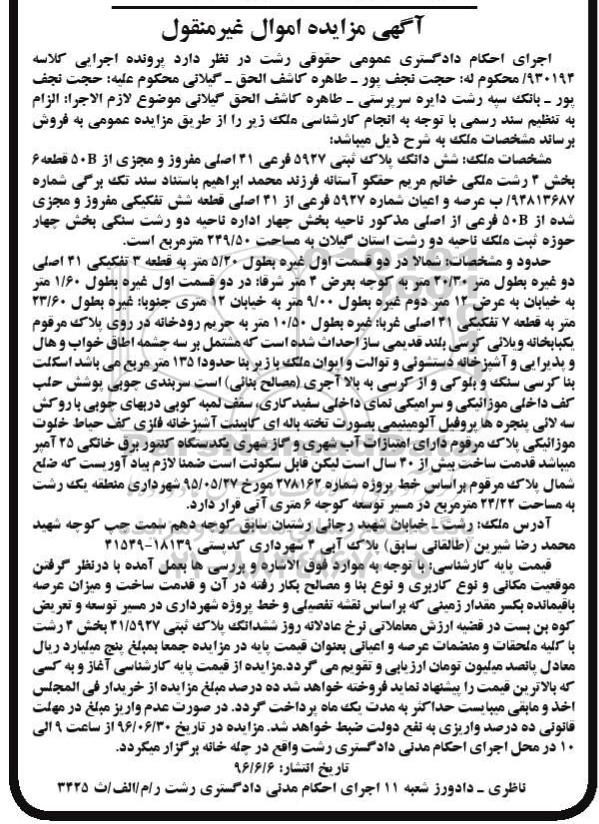 آگهی مزایده اموال غیرمنقول
اجرای احکام دادگستری عمومی حقوقی رشت در نظر دارد پرونده اجرایی کلاسه
۹۳۰۱۹۴/ محکوم له: حجت نجف پور ـ طاهره کاشف الحق ـ گیلانی محکوم علیه: حجت نجف
پور ـ بانک سپه رشت دایره سرپرستی ـ طاهره کاشف الحق گیلانی موضوع لازم الاجرا: الزام
به تنظیم سند رسمی با توجه به انجام کارشناسی ملک زیر را از طریق مزایده عمومی به فروش
برساند مشخصات ملک به شرح ذیل میباشد:
مشخصات ملک: شش دانگ پلاک ثبتی ۵۹۲۷ فرعی ۴۱ اصلی مفروز و مجزی از ۵۰B قطعه۶
بخش ۴ رشت ملکی خانم مریم حقگو آستانه فرزند محمد ابراهیم باستناد سند تک برگی شماره
۹۴۸۱۳۶۸۷/ ب عرصه و اعیان شماره ۵۹۲۷ فرعی از ۴۱ اصلی قطعه شش تفکیکی مفروز و مجزی
شده از ۵۰B فرعی از اصلی مذکور ناحیه بخش چهار اداره ناحیه دو رشت سنگی بخش چهار
حوزه ثبت ملک ناحیه دو رشت استان گیلان به مساحت ۲۴۹/۵۰ مترمربع است.
حدود و مشخصات: شمالا در دو قسمت اول غیره بطول ۵/۲۰ متر به قطعه ۳ تفکیکی ۴۱ اصلی
دو غیره بطول متر ۲۰/۳۰ متر به کوچه بعرض ۴ متر شرقا: در دو قسمت اول غیره بطول ۱/۶۰ متر
به خیابان به عرض ۱۲ متر دوم غیره بطول ۹/۰۰ متر به خیابان ۱۲ متری جنوبا: غیره بطول ۲۳/۶۰
متر به قطعه ۷ تفکیکی ۴۱ اصلی غربا: غیره بطول ۱۰/۵۰ متر به حریم رودخانه در روی پلاک مرقوم
یکبابخانه ویلائی کرسی بلند قدیمی ساز احداث شده است که مشتمل بر سه چشمه اطاق خواب و هال
و پذیرایی و آشپزخانه دستشوئی و توالت و ایوان ملک با زیر بنا حدودا ۱۳۵ متر مربع می باشد اسکلت
بنا کرسی سنگ و بلوکی و از کرسی به بالا آجری (مصالح بنائی) است سربندی چوبی پوشش حلب
کف داخلی موزائیکی و سرامیکی نمای داخلی سفیدکاری، سقف لمبه کوبی دربهای چوبی با روکش
سه لائی پنجره ها پروفیل آلومینیمی بصورت تخته باله ای کابینت آشپزخانه فلزی کف حیاط خلوت
موزائیکی پلاک مرقوم دارای امتیازات آب شهری و گاز شهری یکدستگاه کنتور برق خانگی ۲۵ آمپر
میباشد قدمت ساخت بیش از ۴۰ سال است لیکن قابل سکونت است ضمنا لازم بیاد آوریست که ضلع
شمال پلاک مرقوم براساس خط پروژه شماره ۲۷۸۱۶۲ مورخ ۹۵/۰۵/۲۷ شهرداری منطقه یک رشت
به مساحت ۲۴/۲۲ مترمربع در مسیر توسعه کوچه ۶ متری آتی قرار دارد.
آدرس ملک: رشت ـ خیابان شهید رجائی رشتیان سابق کوچه دهم سمت چپ کوچه شهید
محمد رضا شیرین (طالقانی سابق) پلاک آبی ۴ شهرداری کدپستی ۱۸۱۳۹-۴۱۵۳۹
قیمت پایه کارشناسی: با توجه به موارد فوق الاشاره و بررسی ها بعمل آمده با درنظر گرفتن
موقعیت مکانی و نوع کاربری و نوع بنا و مصالح بکار رفته در آن و قدمت ساخت و میزان عرصه
باقیمانده بکسر مقدار زمینی که براساس نقشه تفصیلی و خط پروژه شهرداری در مسیر توسعه و تعریض
کوه بن بست در قضیه ارزش معاملاتی نرخ عادلانه روز ششدانگ پلاک ثبتی ۴۱/۵۹۲۷ بخش ۴ رشت
با کلیه ملحقات و منضمات عرصه و اعیانی بعنوان قیمت پایه در مزایده جمعا بمبلغ پنج میلیارد ریال
معادل پانصد میلیون تومان ارزیابی و تقویم می گردد.مزایده از قیمت پایه کارشناسی آغاز و به کسی
که بالاترین قیمت را پیشنهاد نماید فروخته خواهد شد ده درصد مبلغ مزایده از خریدار فی المجلس
اخذ و مابقی میبایست حداکثر به مدت یک ماه پرداخت گردد. در صورت عدم واریز مبلغ در مهلت
قانونی ده درصد واریزی به تفع دولت ضبط خواهد شد. مزایده در تاریخ ۹۶/۰۶/۳۰ از ساعت ۹ الی
۱۰ در محل اجرای احکام مدنی دادگستری رشت واقع در چله خانه برگزار میگردد.
تاریخ انتشار: ۹۶/۶/۶
ناظری ـ دادورز شعبه ۱۱ اجرای احکام مدنی دادگستری رشت ر/م/الف/ث ۳۴۲۵